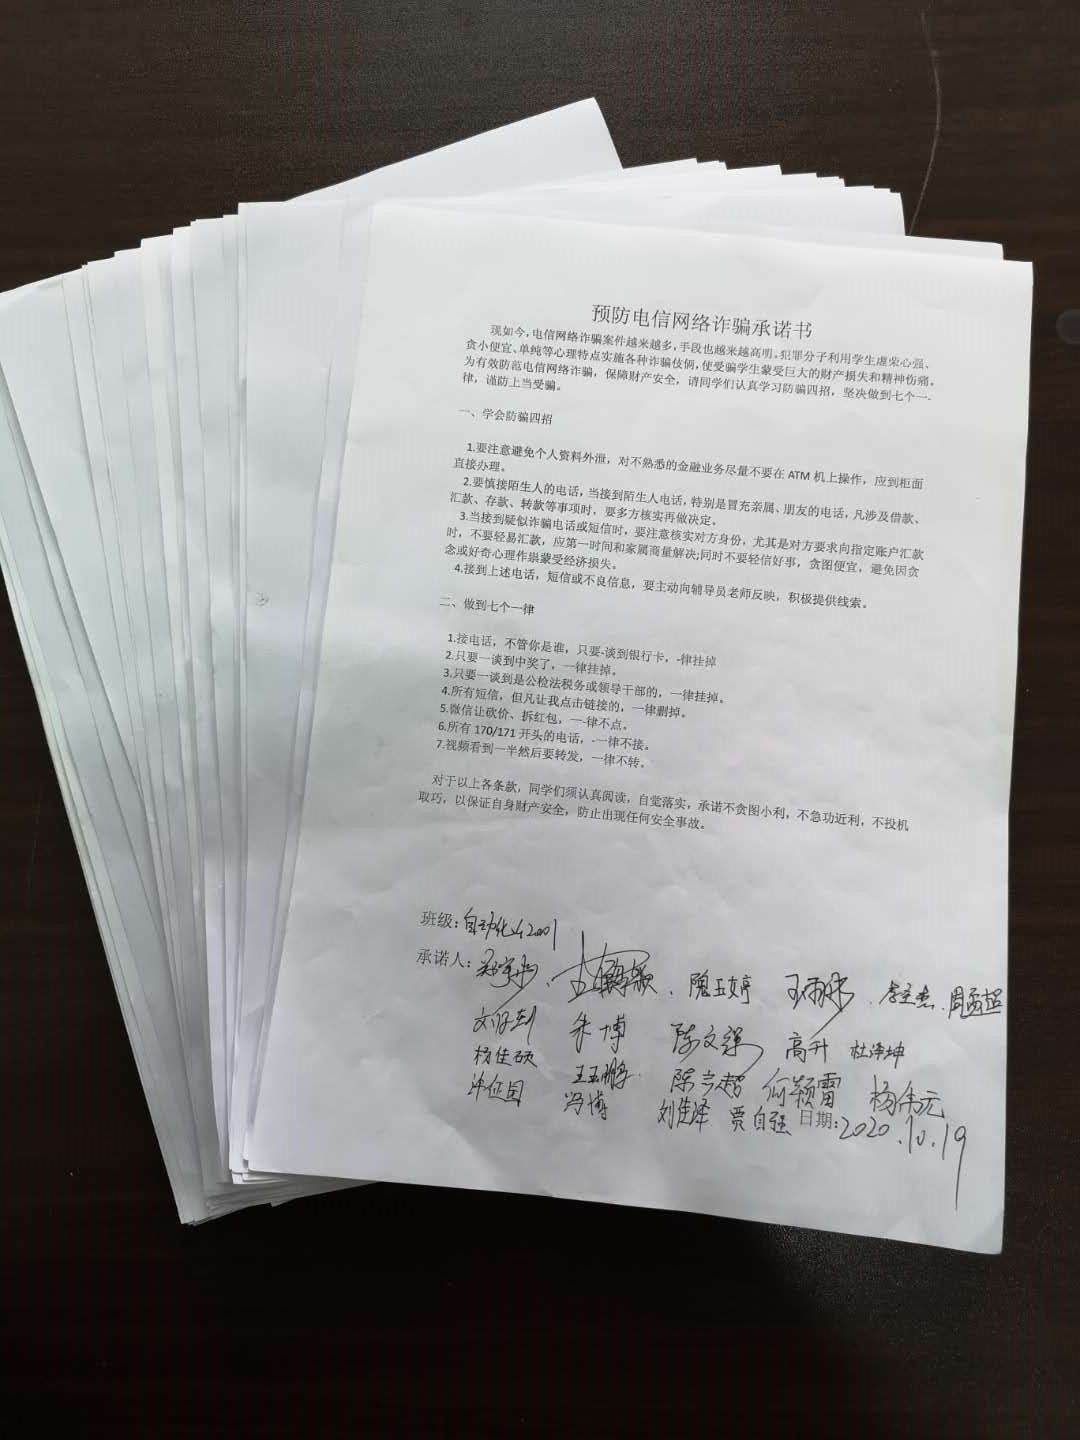 预防电信网络诈骗承诺书
现如今，电信网络诈骗案件越来越多，手段也越来越高明，犯罪分子利用学生虚荣心强、
贪小便宜、单纯等心理特点实施各种诈骗伎俩，使受骗学生蒙受巨大的财产损失和精神伤痛。
为有效防范电信网络诈骗，保障财产安全，请同学们认真学习防骗四招，坚决做到七个一-
律，谨防上当受骗。
一、学会防骗四招
1.要注意避免个人资料外泄，对不熟悉的金融业务尽量不要在 ATM 机上操作，应到柜面
直接办理。
2.要慎接陌生人的电话，当接到陌生人电话，特别是冒充亲属、朋友的电话，凡涉及借款、
汇款、存款、转款等事项时，要多方核实再做决定。
3.当接到疑似诈骗电话或短信时，要注意核实对方身份，尤其是对方要求向指定账户汇款
时，不要轻易汇款，应第一时间和家属商量解决;同时不要轻信好事，贪图便宜，避免因贪
念或好奇心理作祟蒙受经济损失。
4.接到上述电话，短信或不良信息，要主动向辅导员老师反映，积极提供线索。
二、做到七个一律
1.接电话，不管你是谁，只要-谈到银行卡，-律挂掉
2.只要一谈到中奖了，一律挂掉。
3.只要一谈到是公检法税务或领导干部的，一律挂掉。
4.所有短信，但凡让我点击链接的，一律删掉。
5.微信让砍价、拆红包，一-律不点。
6.所有 170/171 开头的电话，-一律不接。
7.视频看到一半然后要转发，一律不转。
对于以上各条款，同学们须认真阅读，自觉落实，承诺不贪图小利，不急功近利，不投机
取巧，以保证自身财产安全，防止出现任何安全事故。
班级：自动化 2001
承诺人： 隗玉婷 周孟超
朱博 陈文强 高升 杜泽坤
杨佳硕 王玉鹏 何颖雷 杨伟元
冯博 刘佳泽 贾自强 日期：2020.10.19